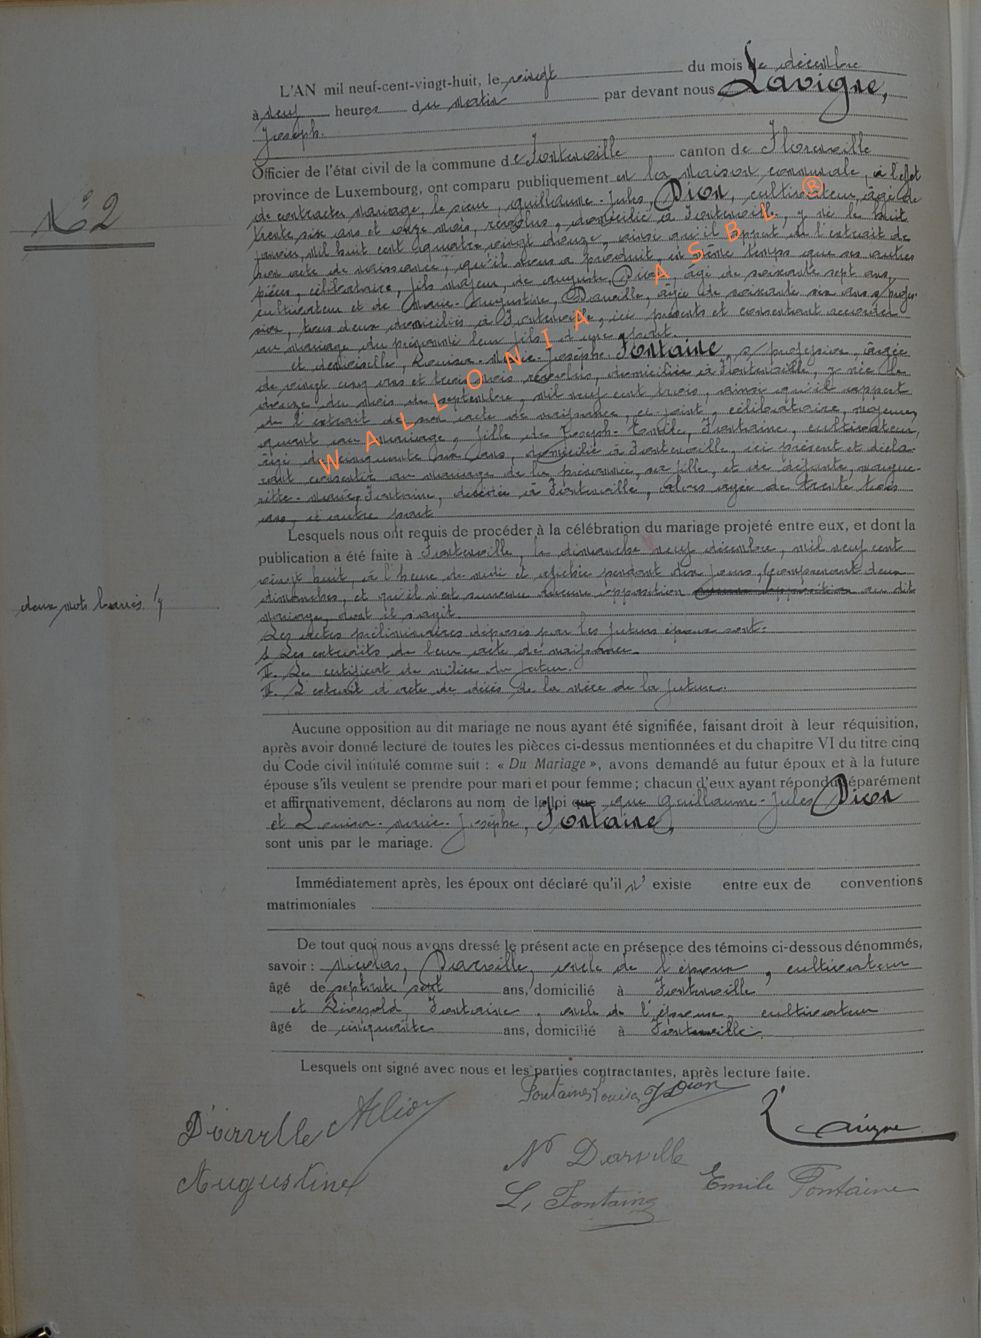 L'AN mil neuf-cent-vingt-huit, le vingt du mois de décembre
à neuf heures du matin par devant nous Lavigne,
Joseph.
Officier de l'état civil de la commune de Fontenoille canton de Florenville
province de Luxembourg, ont comparu publiquement en la maison communale, à l'effet
N° 2
de contracter mariage, le sieur, Guillaume-Jules, Dion, cultivateur, âgé de
trente six ans et onze mois, révolus, domicilié à Fontenoille, y né le huit
janvier, mil huit cent quatre vingt douze, ainsi qu'il appert de l'extrait de
son acte de naissance, qu'il nous a produit, en même temps que ses autres
pièces, célibataire, fils majeur, de Auguste, Dion, âgé de soixante sept ans,
cultivateur et de Marie-Augustine, Darville, âgée de soixante six ans, s/ profes-
sion, tous deux domiciliés à Fontenoille, ici présents et consentant accorder
au mariage du prénommé leur fils, d'une part.
et demoiselle, Louisa-Marie-Josèphe, Fontaine, s/ profession, âgée
de vingt cinq ans et trois mois révolus, domiciliée à Fontenoille, y née le
douze du mois de septembre, mil neuf cent trois, ainsi qu'il appert
de l'extrait de son acte de naissance, ci joint, célibataire, moyen
quant au mariage, fille de Joseph-Emile, Fontaine, cultivateur,
âgé de cinquante six ans, domicilié à Fontenoille, ici présent et décla-
rant consentir au mariage de la prénommée, sa fille, et de défunte, Margue-
ritte-Marie, Fontaine, décédée à Fontenoille, alors âgée de trente trois
ans, d'autre part
WALLONIA ASBL ®
Lesquels nous ont requis de procéder à la célébration du mariage projeté entre eux, et dont la
publication a été faite à Fontenoille, le dimanche neuf décembre, mil neuf cent
vingt huit, à l'heure de midi et affichée pendant dix jours, comprenant deux
dimanches, et qu'il n'est survenu aucune opposition au dit
deux mots barrés
mariage, dont il s'agit.
Les actes préliminaires déposés par les futurs époux sont:
I. Les extraits de leur acte de naissance.
II. Le certificat de milice du futur.
II. L'extrait d'acte de décès de la mère de la future.
Aucune opposition au dit mariage ne nous ayant été signifiée, faisant droit à leur réquisition,
après avoir donné lecture de toutes les pièces ci-dessus mentionnées et du chapitre VI du titre cinq
du Code civil intitulé comme suit : « Du Mariage », avons demandé au futur époux et à la future
épouse s'ils veulent se prendre pour mari et pour femme ; chacun d'eux ayant répondu séparément
et affirmativement, déclarons au nom de la loi que que Guillaume-Jules Dion
et Louisa-Marie-Josèphe, Fontaine,
sont unis par le mariage.
Immédiatement après, les époux ont déclaré qu'il n' existe entre eux de conventions
matrimoniales
De tout quoi nous avons dressé le présent acte en présence des témoins ci-dessous dénommés,
savoir : Nicolas, Darville, oncle de l'époux, cultivateur
âgé de septante sept ans, domicilié à Fontenoille
et Léopold, Fontaine, oncle de l'épouse, cultivateur
âgé de cinquante ans, domicilié à Fontenoille.
Lesquels ont signé avec nous et les parties contractantes, après lecture faite.
Fontaine Louisa J Dion
Darville A Dion
Augustine
N Darville
L, Fontaine
Emile Fontaine